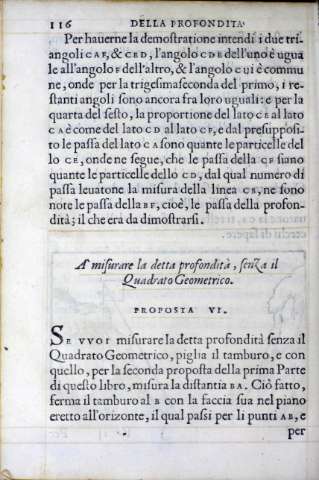 116 DELLA PROFONDITA'
Per hauerne la demostratione intendi i due tri-
angoli CAF, & CED, l'angolo CDE dell'uno è ugua
le all'angolo F dell'altro, & l'angolo C ui è commu
ne, onde per la trigesimaseconda del primo, i re-
stanti angoli sono ancora fra loro uguali: e per la
quarta del sesto, la proportione del lato CE al lato
CA è come del lato CD al lato CF, e dal presuppos-
to le passa del lato CA sono quante le particelle del
lo CE, onde ne segue, che le passa della CF siano
quante le particelle dello CD, dal qual numero di
passa leuatone la misura della linea CB, ne sono
note le passa della BF, cioè, le passa della profon-
dità; il che era da dimostrarsi.
A misurare la detta profondità, senza il
Quadrato Geometrico.
PROPOSTA VI.
SE VVOI misurare la detta profondità senza il
Quadrato Geometrico, piglia il tamburo, e con
quello, per la seconda proposta della prima Parte
di questo libro, misura la distantia BA. Ciò fatto,
ferma il tamburo al B con la faccia sua nel piano
eretto all'orizonte, il qual passi per li punti AB, e
per